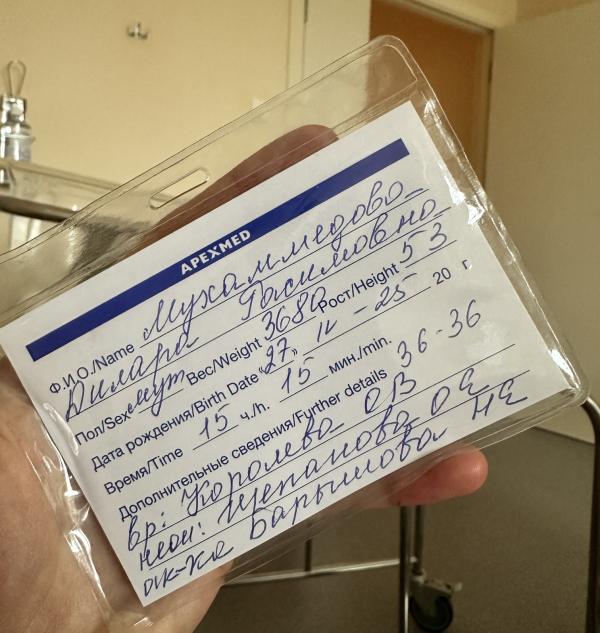 APEXMED
Ф.И.О./Name Мухаммедова
Дилара Гасимовна
Пол/Sex муж Вес/Weight 3680 Рост/Height 53
Дата рождения/Birth Date "27, 11 - 25 20 г.
Время/Time 15 ч./h. 15 мин./min.
Дополнительные сведения/Further details 36-36
вр: Королева ОВ
неон: Щепанова ОЕ
ак-ка Барышова НЕ